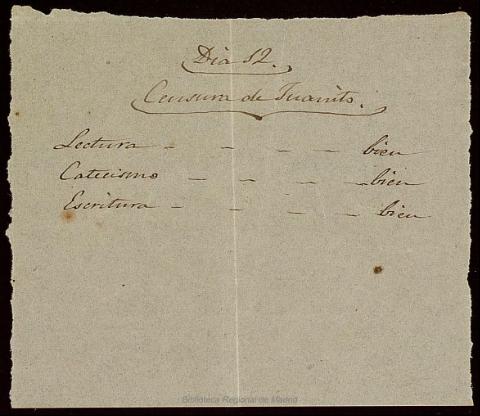 Dia 12.
Censura de Juanito.
Lectura - - - - - bien
Catecismo - - - - bien
Escritura - - - - bien
Biblioteca Regional de Madrid